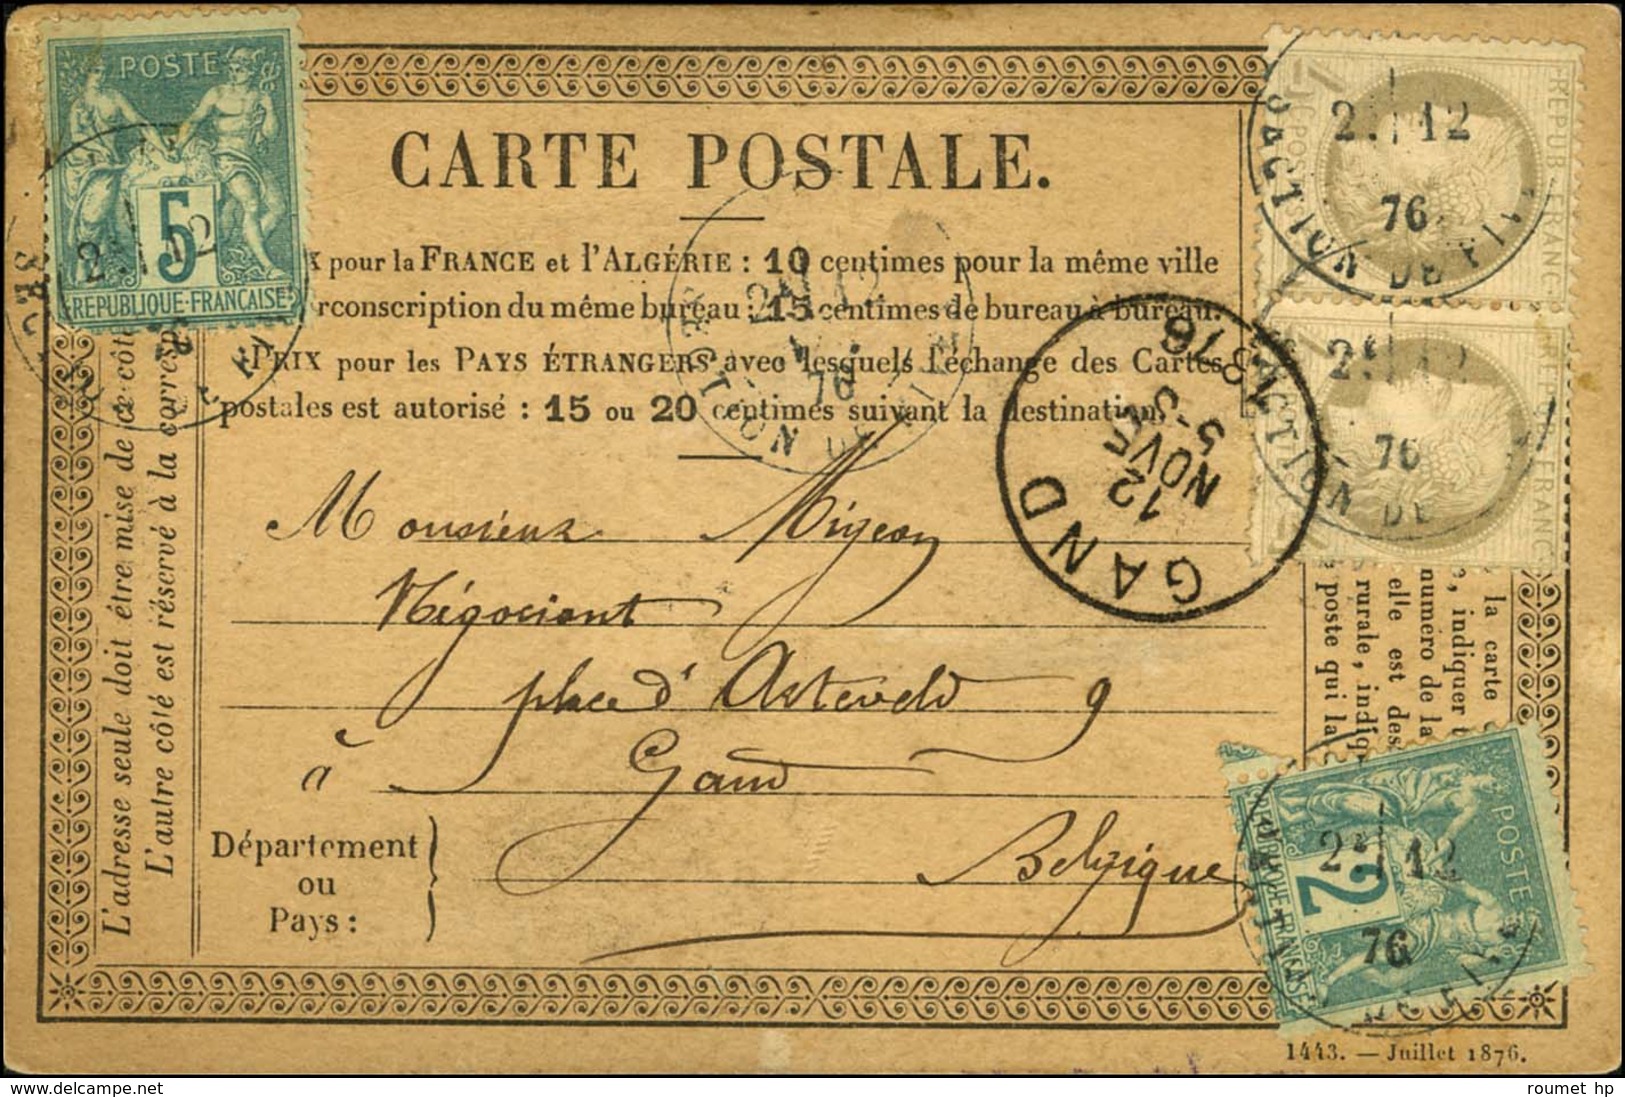 POSTE
5
REPUBLIQUE-FRANÇAISE
CARTE POSTALE.
pour la FRANCE et l'ALGÉRIE : 10 centimes pour la même ville
rconscription du même bureau : 15 centimes de bureau à bureau.
PRIX pour les PAYS ÉTRANGERS avec lesquels l'échange des Cartes
postales est autorisé : 15 ou 20 centimes suivant la destination.
Monsieur Migeon
Négociant
place d'Asteveld 9
à Gand
Département
ou
Pays :
Belgique
L'adresse seule doit être mise de ce côté
L'autre côté est réservé à la corresp
la carte
, indiquer
numéro de la
elle est des
rurale, indiq
poste qui la
GAND
12
NOV
5-S
1876
2 12
76
2 12
76
2 12
76
2 12
76
POSTE
2
1443. — Juillet 1876.
roumet hp